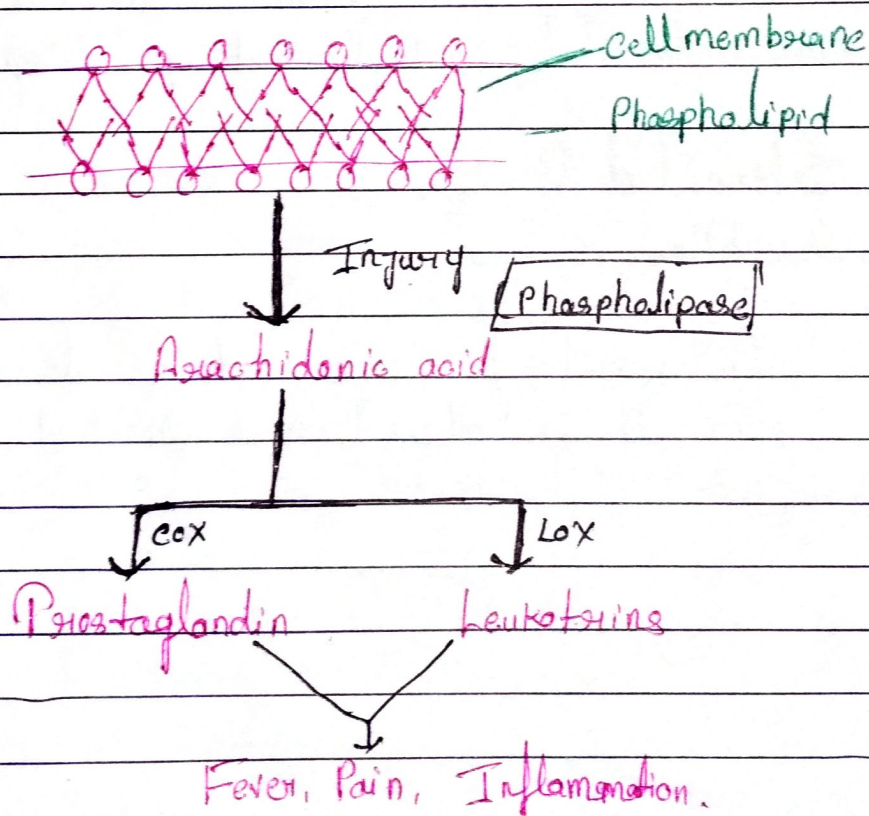 Cell membrane
Phospholipid
Injury
Phospholipase
Arachidonic acid
COX
LOX
Prostaglandin
Leukotrins
Fever, Pain, Inflammation.